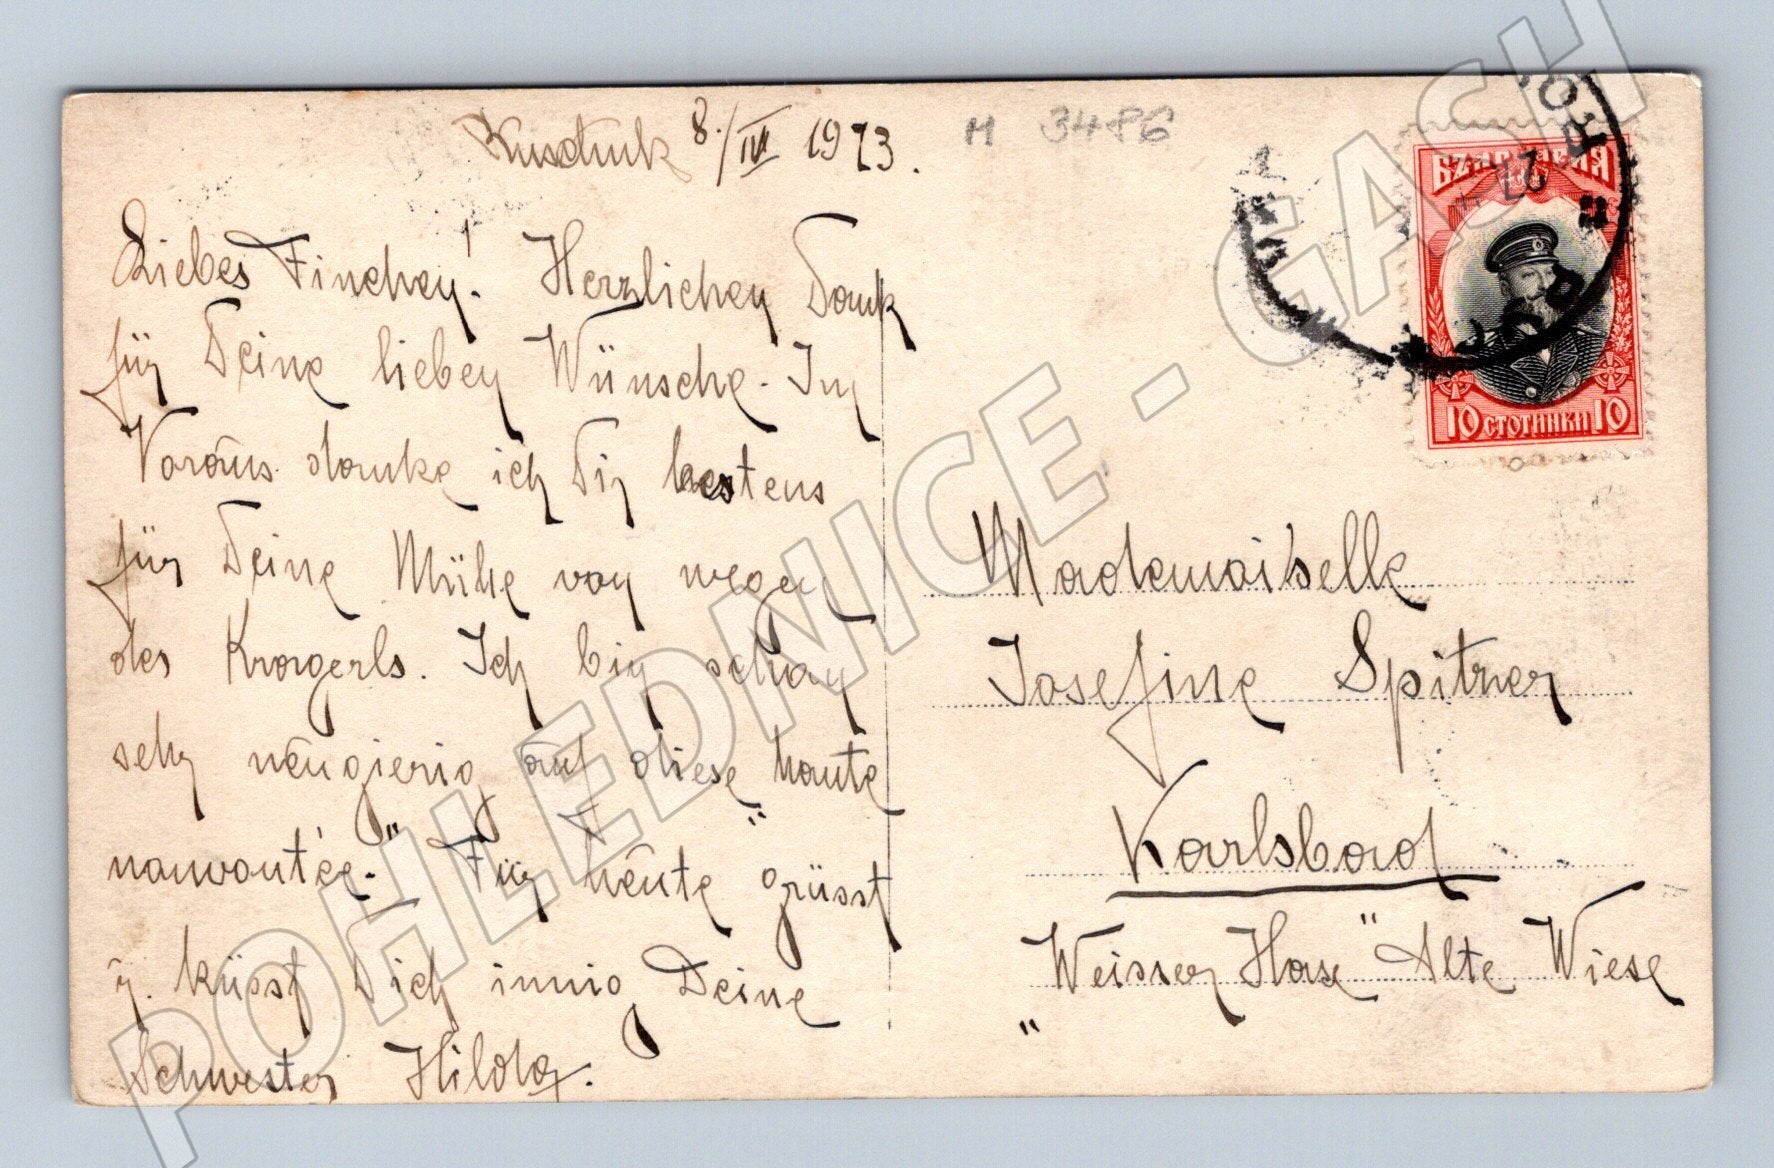 Rustschuk 8./III 1913.
M 3486
Liebes Finchen! Herzlichen Dank
für Deine lieben Wünsche. Im
Voraus danke ich Dir bestens
für Deine Mühe von wegen
des Kragerls. Ich bin schon
sehr neugierig auf diese haute
"nouvoutée." Für heute grüsst
u. küsst Dich innig Deine
Schwester Hilda.
БЪЛГАРИЯ
10 СТОТИНКИ 10
Mademoiselle
Josefine Spitzer
Karlsbad
"Weisser Hase" Alte Wiese
POHLEDNICE - GASH